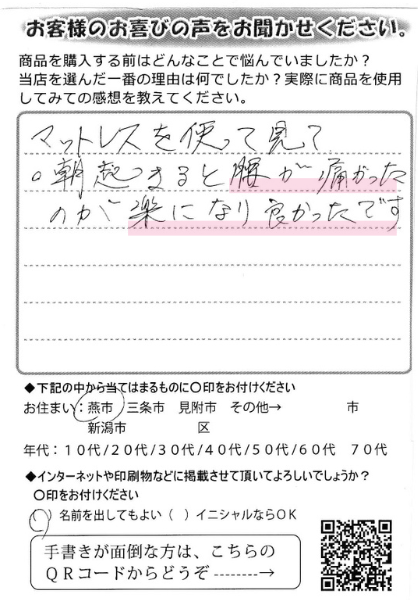 お客様のお喜びの声をお聞かせください。
商品を購入する前はどんなことで悩んでいましたか？
当店を選んだ一番の理由は何でしたか？実際に商品を使用
してみての感想を教えてください。
マットレスを使って見て
。朝起きると腰が痛かった
のが楽になり良かったです
◆下記の中から当てはまるものに〇印をお付けください
お住まい：燕市 三条市 見附市 その他→ 市
新潟市 区
年代：１０代/２０代/３０代/４０代/５０代/６０代 ７０代
◆インターネットや印刷物などに掲載させて頂いてよろしいでしょうか？
〇印をお付けください
（〇）名前を出してもよい（ ）イニシャルならＯＫ
手書きが面倒な方は、こちらの
ＱＲコードからどうぞ--------→